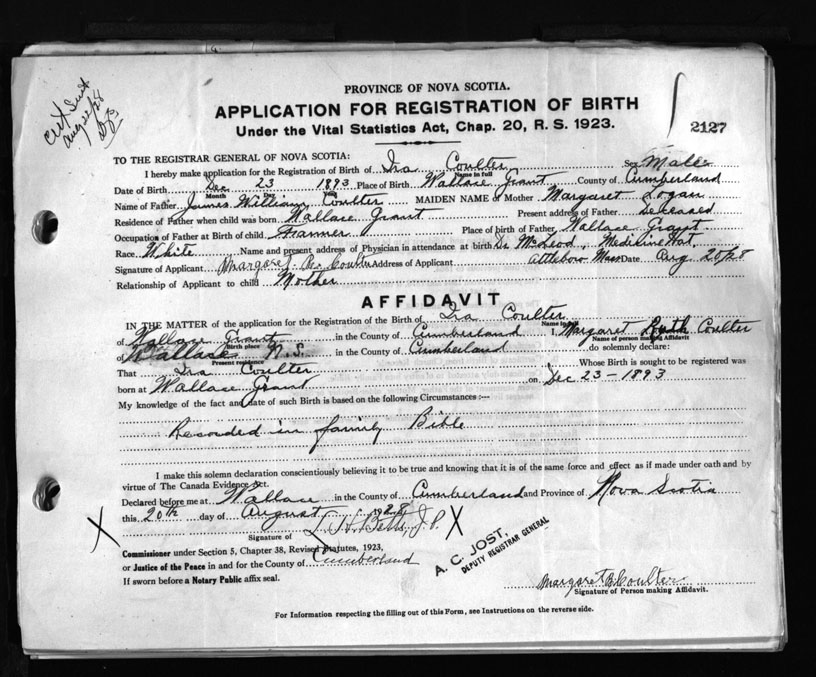 Cert Sent
Aug 22/28
PROVINCE OF NOVA SCOTIA.
APPLICATION FOR REGISTRATION OF BIRTH
Under the Vital Statistics Act, Chap. 20, R. S. 1923.
2127
TO THE REGISTRAR GENERAL OF NOVA SCOTIA:
I hereby make application for the Registration of Birth of Ira Coulter Sex Male
Name in full
Date of Birth Dec 23 1893 Place of Birth Wallace Grant County of Cumberland
Month Day Year
Name of Father James William Coulter MAIDEN NAME of Mother Margaret Logan
Residence of Father when child was born Wallace Grant Present address of Father Deceased
Occupation of Father at Birth of child Farmer Place of birth of Father Wallace Grant
Race White Name and present address of Physician in attendance at birth Dr McLeod, Medicine Hat,
Signature of Applicant Margaret Coulter Address of Applicant Attleboro Mass Date Aug 20/28
Relationship of Applicant to child Mother
AFFIDAVIT
IN THE MATTER of the application for the Registration of the Birth of Ira Coulter
Name in full
of Wallace Grant in the County of Cumberland I, Margaret Ruth Coulter
Birth place Name of person making Affidavit
of Wallace N.S. in the County of Cumberland do solemnly declare:
Present residence
That Ira Coulter Whose Birth is sought to be registered was
born at Wallace Grant on Dec 23-1893
My knowledge of the fact and date of such Birth is based on the following Circumstances :---
Recorded in family Bible
I make this solemn declaration conscientiously believing it to be true and knowing that it is of the same force and effect as if made under oath and by
virtue of The Canada Evidence Act.
Declared before me at Wallace in the County of Cumberland and Province of Nova Scotia
this 20th day of August 1928
X Signature of Betts J.P. X
Commissioner under Section 5, Chapter 38, Revised Statutes, 1923,
or Justice of the Peace in and for the County of Cumberland
If sworn before a Notary Public affix seal.
A. C. JOST,
DEPUTY REGISTRAR GENERAL
Margaret R Coulter
Signature of Person making Affidavit.
For Information respecting the filling out of this Form, see Instructions on the reverse side.